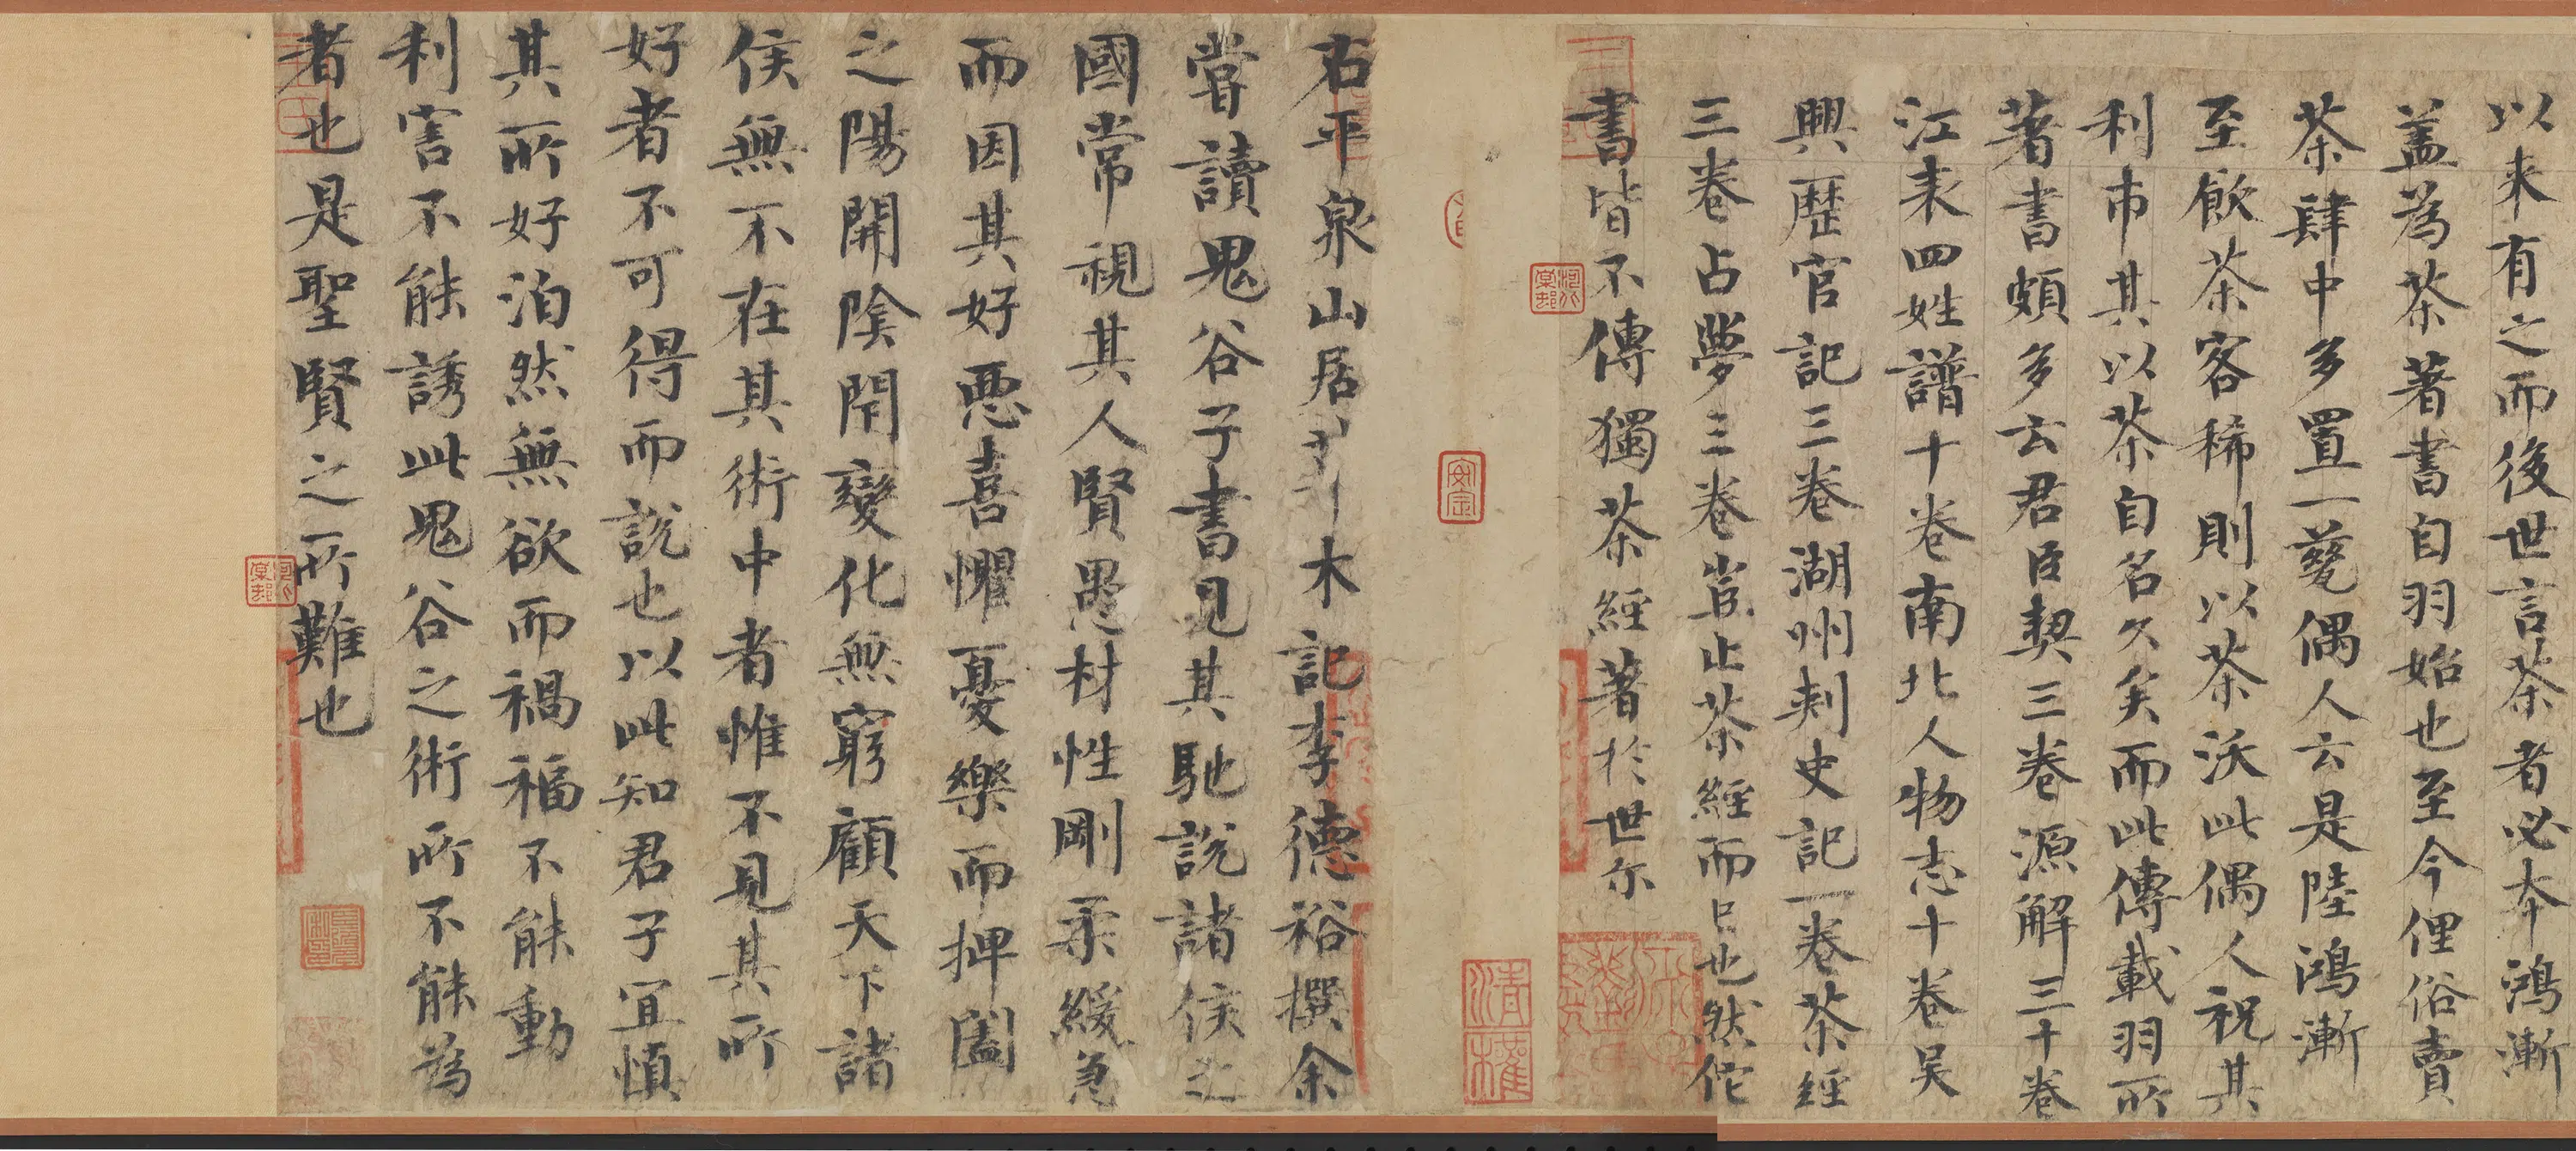 以来有之而後世言茶者必本鴻漸
盖為茶著書自羽始也至今俚俗賣
茶肆中多置一甆偶人云是陸鴻漸
至飲茶客稀則以茶沃此偶人祝其
利市其以茶自名久矣而此傳載羽所
著書頗多云君臣契三卷源解三十卷
江表四姓譜十卷南北人物志十卷吴
興歷官記三卷湖州刺史記一卷茶經
三卷占夢三卷豈止茶經而已也然佗
書皆不傳獨茶經著於世尔
右平泉山居草木記李德裕撰余
嘗讀鬼谷子書見其馳說諸侯之
國常視其人賢愚材性剛柔緩急
而因其好悪喜懼憂樂而捭闔
之陽開陰閉變化無窮顧天下諸
侯無不在其術中者惟不見其所
好者不可得而說也以此知君子宜慎
其所好泊然無欲而禍福不能動
利害不能誘此鬼谷之術所不能為
者也是聖賢之所難也